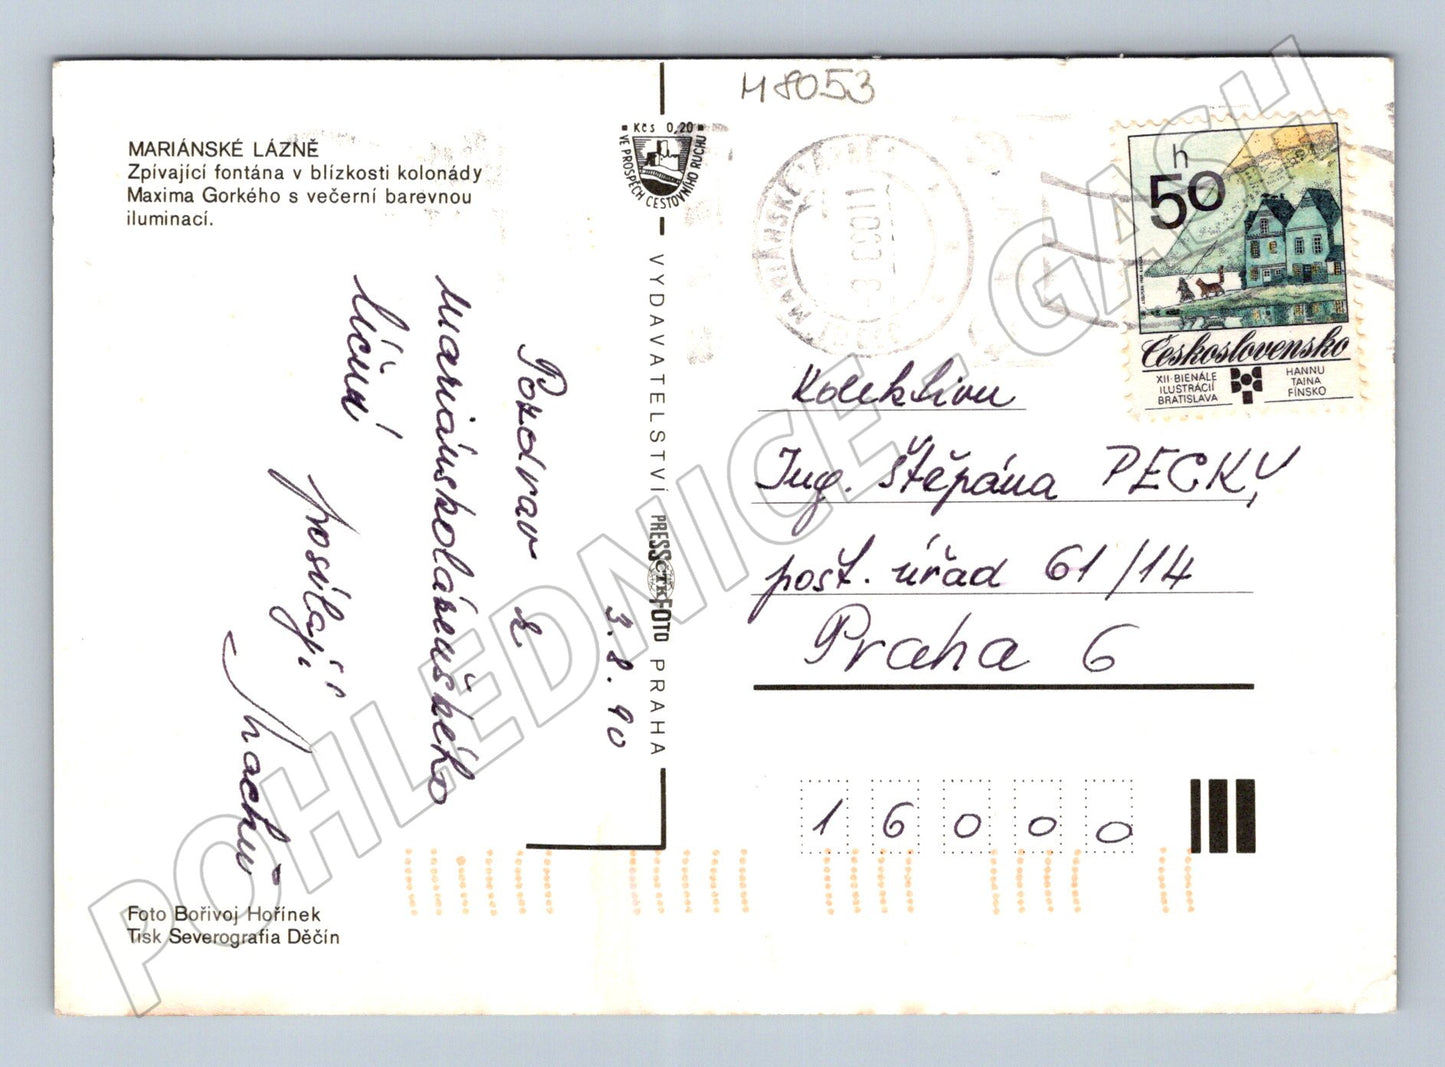 H8053
MARIÁNSKÉ LÁZNĚ
Zpívající fontána v blízkosti kolonády
Maxima Gorkého s večerní barevnou
iluminací.
Kčs 0,20
VE PROSPĚCH CESTOVNÍHO RUCHU
VYDAVATELSTVÍ PRESSFOTO PRAHA
ČTK
MARIÁNSKÉ LÁZNĚ
h
50
Československo
XII. BIENÁLE
ILUSTRÁCIÍ
BRATISLAVA
HANNU
TAINA
FÍNSKO
3.8.90
Pozdrav z
Mariánskolázeňského
líčení
posílají
Kolektivu
Ing. Štěpána PECKY,
pošt. úřad 61/14
Praha 6
16000
Foto Bořivoj Hořínek
Tisk Severografia Děčín
POHLEDNICE - GASH